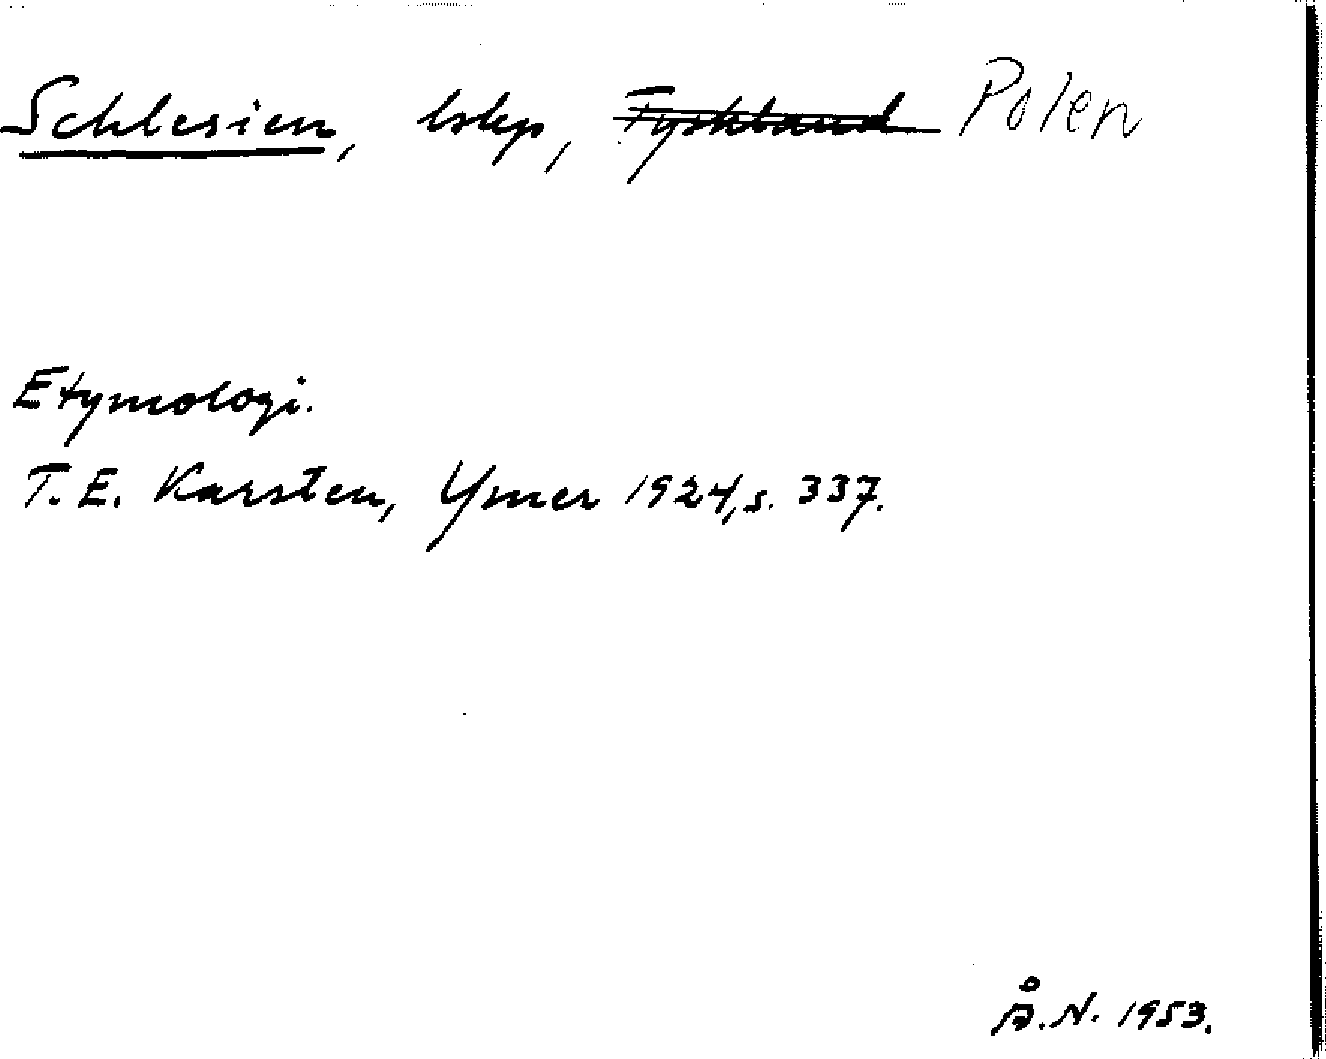 Schlesien, lskp, Tyskland Polen
Etymologi.
T. E. Karsten, Ymer 1924, s. 337.
Å. N. 1953.